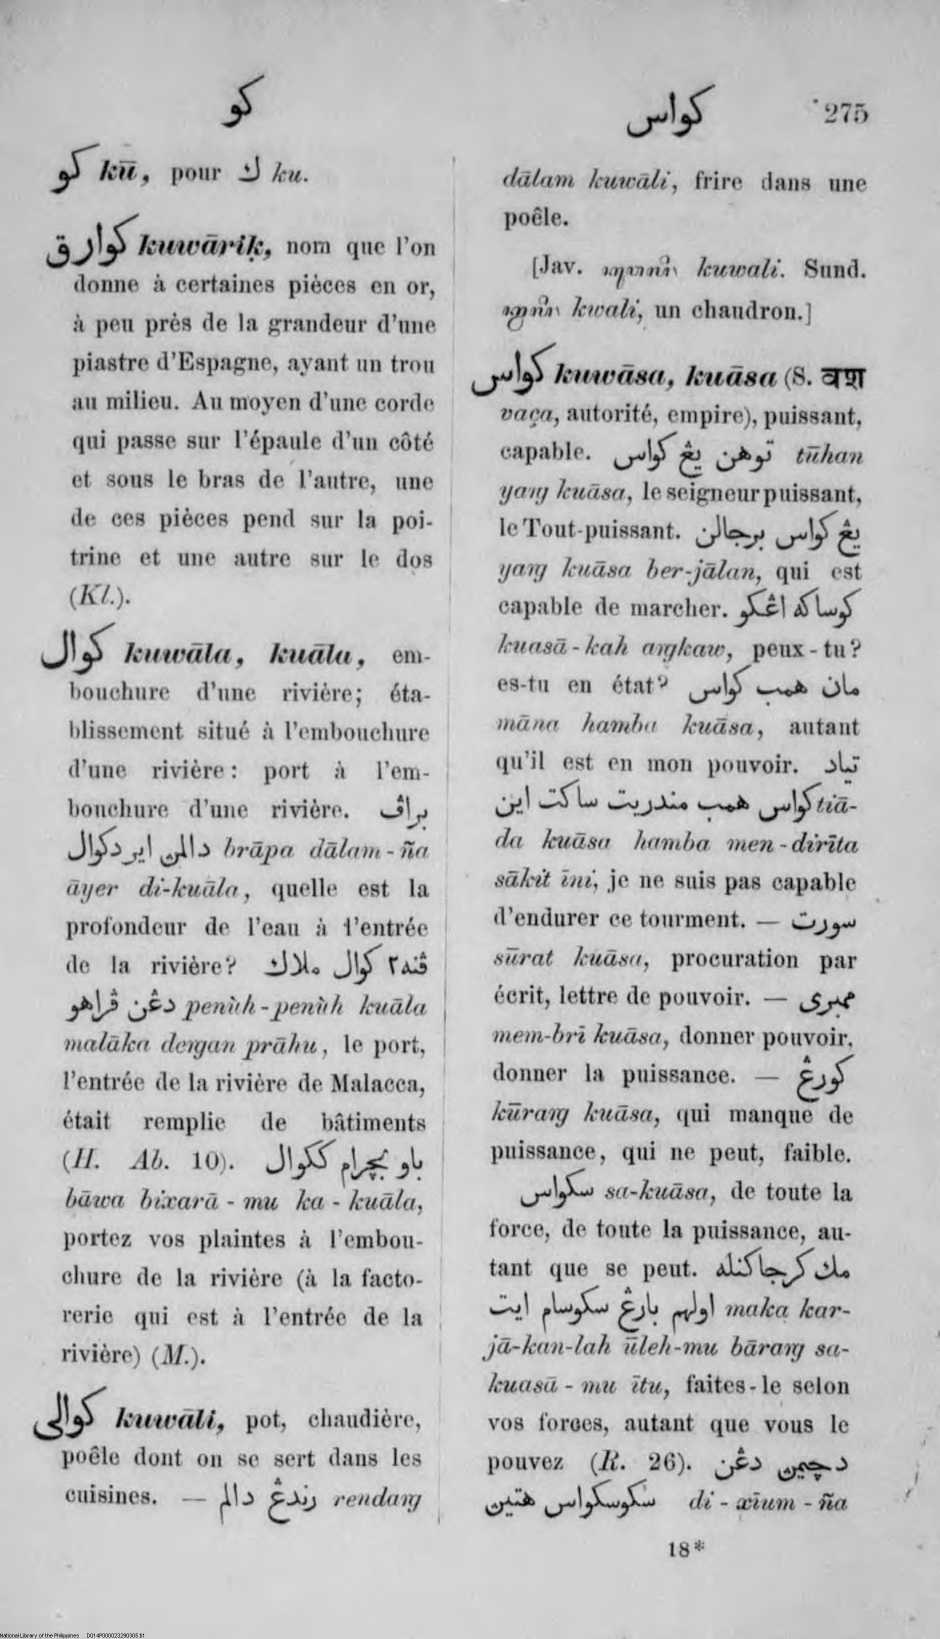 كو
كواس
275
كو kū, pour ك ku.
كوارق kuwāriḳ, nom que l'on
donne à certaines pièces en or,
à peu près de la grandeur d'une
piastre d'Espagne, ayant un trou
au milieu. Au moyen d'une corde
qui passe sur l'épaule d'un côté
et sous le bras de l'autre, une
de ces pièces pend sur la poi-
trine et une autre sur le dos
(Kl.).
كوال kuwāla, kuāla, em-
bouchure d'une rivière; éta-
blissement situé à l'embouchure
d'une rivière: port à l'em-
bouchure d'une rivière. براڤ
دالمن اير دكوال brāpa dālam-ña
āyer di-kuāla, quelle est la
profondeur de l'eau à l'entrée
de la rivière? ڤنه٢ كوال ملاك
دڠن ڤراهو penùh-penùh kuāla
malāka deṅgan prāhu, le port,
l'entrée de la rivière de Malacca,
était remplie de bâtiments
(H. Ab. 10). باو بچرام ككوال
bāwa bixarā-mu ka-kuāla,
portez vos plaintes à l'embou-
chure de la rivière (à la facto-
rerie qui est à l'entrée de la
rivière) (M.).
كوالى kuwāli, pot, chaudière,
poêle dont on se sert dans les
cuisines. — رندڠ دالم rendaṅg
dālam kuwāli, frire dans une
poêle.
[Jav. kuwali. Sund.
kwali, un chaudron.]
كواس kuwāsa, kuāsa (S. वश
vaça, autorité, empire), puissant,
capable. توهن يڠ كواس tūhan
yaṅg kuāsa, le seigneur puissant,
le Tout-puissant. يڠ كواس برجالن
yaṅg kuāsa ber-jālan, qui est
capable de marcher. كوساكه اڠكو
kuasā-kah aṅgkaw, peux-tu?
es-tu en état? مان همب كواس
māna hamba kuāsa, autant
qu'il est en mon pouvoir. تياد
كواس همب مندريت ساكت اين tiā-
da kuāsa hamba men-dirīta
sākit īni, je ne suis pas capable
d'endurer ce tourment. — سورت
sūrat kuāsa, procuration par
écrit, lettre de pouvoir. — ممبرى
mem-brī kuāsa, donner pouvoir,
donner la puissance. — كورڠ
kūraṅg kuāsa, qui manque de
puissance, qui ne peut, faible.
سكواس sa-kuāsa, de toute la
force, de toute la puissance, au-
tant que se peut. مك كرجاكنله
اولهم بارڠ سكوسام ايت maka kar-
jā-kan-lah ūleh-mu bāraṅg sa-
kuasā-mu ītu, faites-le selon
vos forces, autant que vous le
pouvez (R. 26). دچيمن دڠن
سكوسكواس هتين di-xīum-ña
18*
National Library of the Philippines